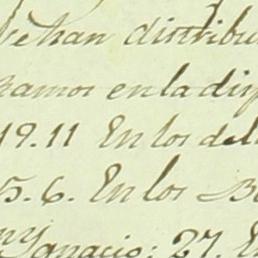 se han distribu
ramos en la dis
19. 11 En los de l
5. 6. En los B
Ignacio: 27. E